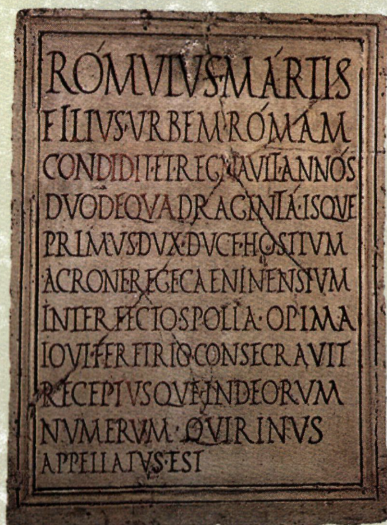 RÓMVLVS·MÁRTIS
FÍLIVS·VRBEM·RÓMAM
CONDIDIT·ET·REGNAVIT·ANNÓS
DVODEQVADRAGINTÁ·ISQVE
PRIMVS·DVX·DVCE·HOSTIVM
ACRONE·REGE·CAENINENSIVM
INTERFECTO·SPOLIA·OPIMA
IOVI·FERETRIO·CONSECRAVIT
RECEPTVSQVE·IN·DEORVM
NVMERVM·QVIRINVS
APPELLATVS·EST